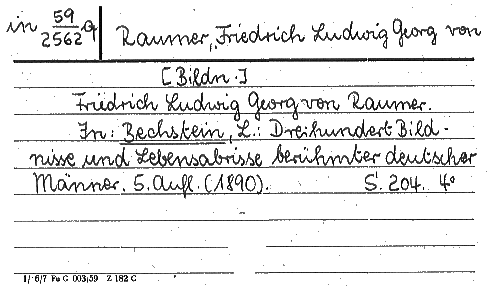 in 59/2562 q Raumer, Friedrich Ludwig Georg von
[Bildn.]
Friedrich Ludwig Georg von Raumer.
In: Bechstein, L.: Dreihundert Bild-
nisse und Lebensabrisse berühmter deutscher
Männer. 5. Aufl. (1890). S. 204. 4°
1/6/7 Fe G 003/59 Z 182 C